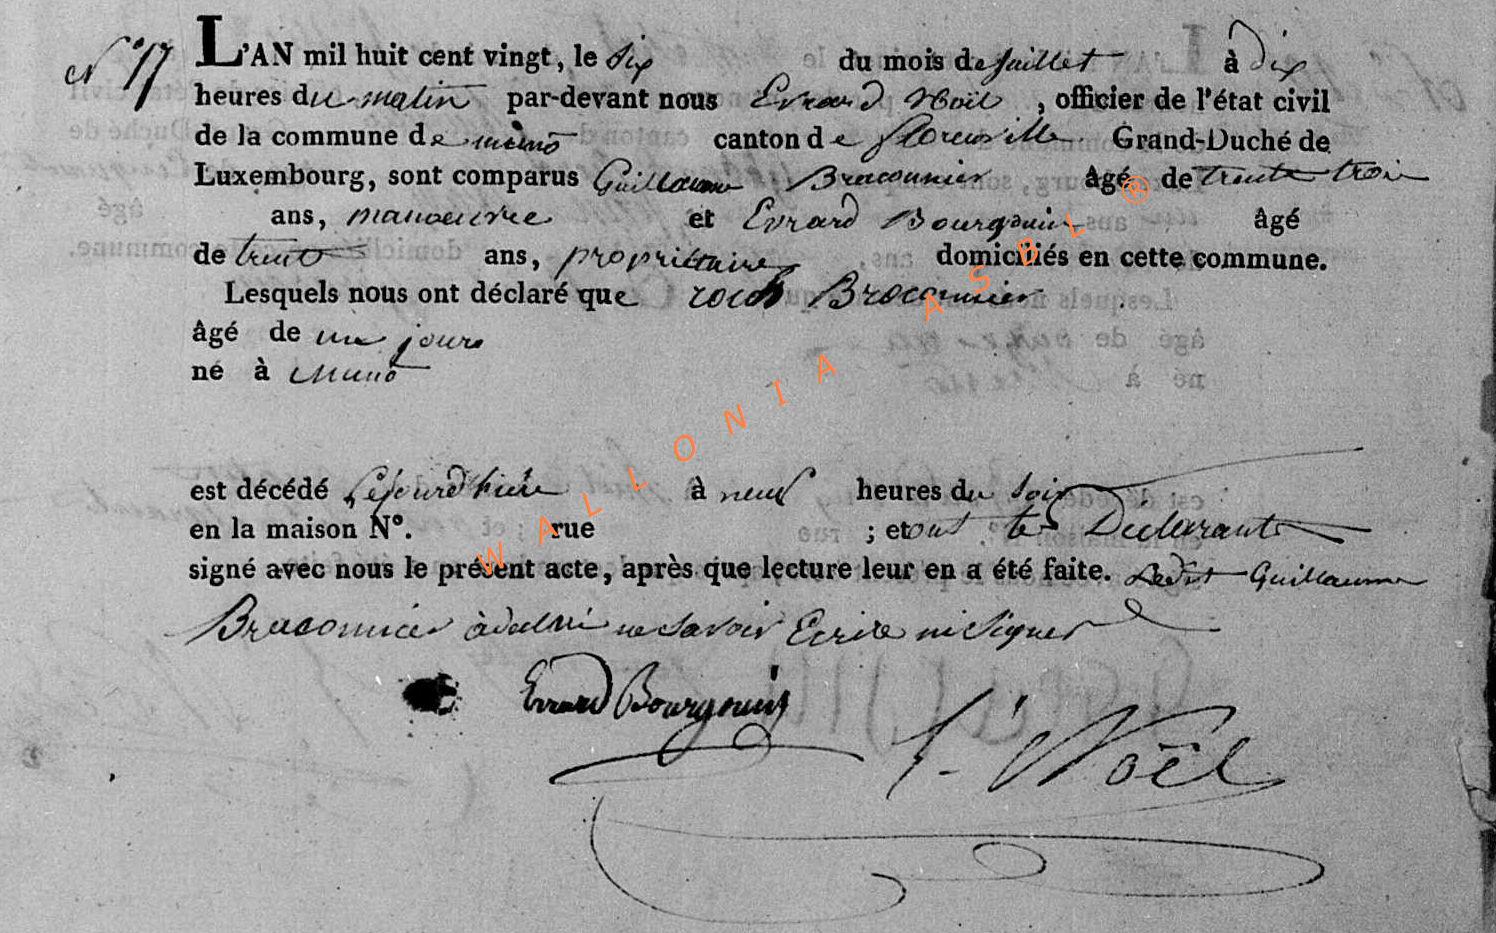 N° 17 L'AN mil huit cent vingt, le Six du mois de Juillet à dix
heures du matin par-devant nous Evrard Noël, officier de l'état civil
de la commune de muno canton de florenville Grand-Duché de
Luxembourg, sont comparus Guillaume Braconnier âgé de trente trois
ans, manoeuvre et Evrard Bourguin âgé
de trente ans, propriétaire domiciliés en cette commune.
Lesquels nous ont déclaré que Braconnier
âgé de un jour
né à Muno
est décédé Lejourdhier à neuf heures du Soir
en la maison N°. rue ; et ont les Déclarants
signé avec nous le présent acte, après que lecture leur en a été faite. Ledit Guillaume
Braconnier à declaré ne Savoir Ecrire ni Signer
Evrard Bourguin
E. Noël
WALLONIA ASBL ®